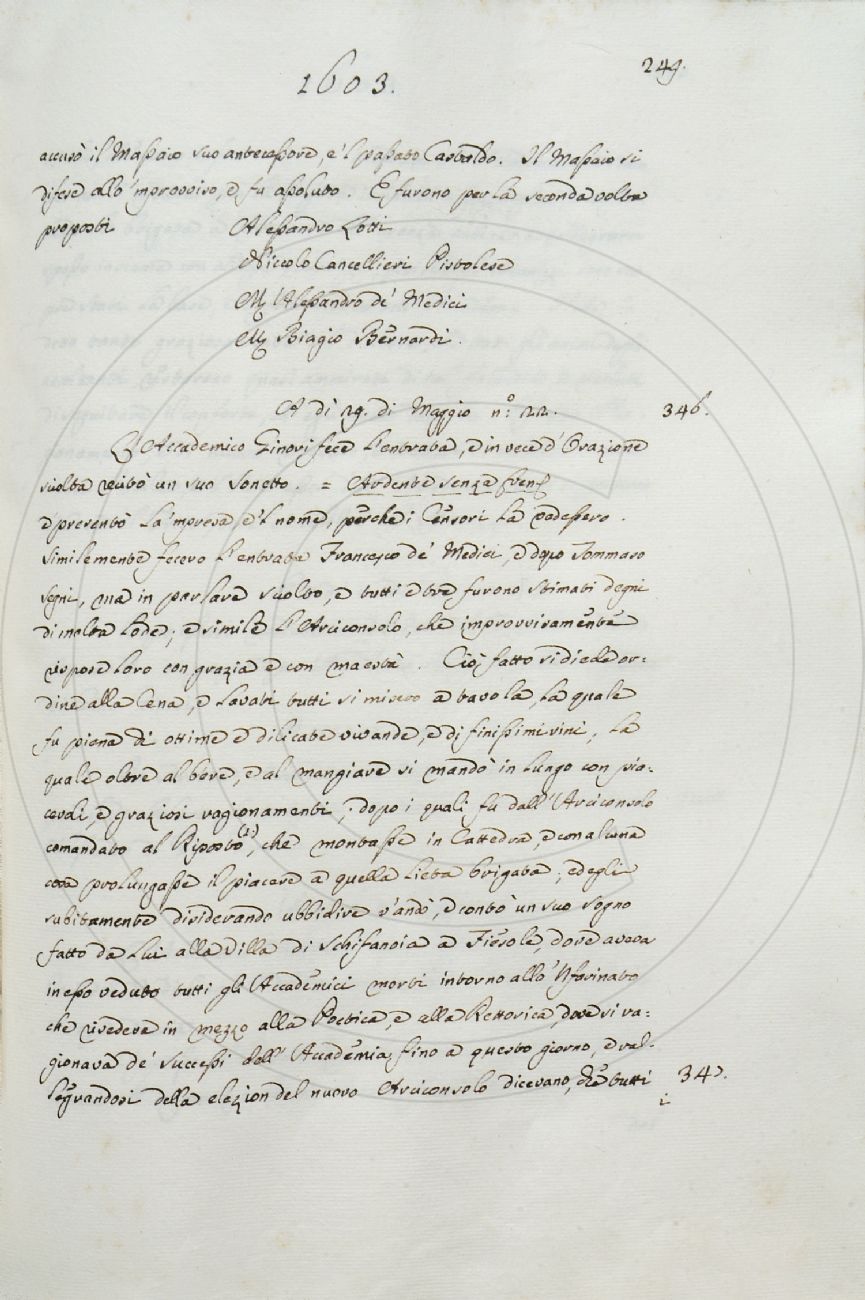 1603.
249.
accusò il Massaio suo antecessore, e 'l passato Castaldo. Il Massaio si
difese allo 'mprovviso, e fu assoluto. E furono per la seconda volta
proposti Alessandro Lotti
Niccolo Cancellieri Pistolese
M. Alessandro de' Medici
M. Biagio Bernardi.
A dì 29. di Maggio n.° 22. 346.
L'Accademico Ginori fece l'entrata, e in vece d'Orazione
sciolta recitò un suo Sonetto. = Ardente senza
e presentò la 'mpresa e 'l nome, perche i Censori la vedessero.
Similemente fecero l'entrata Francesco de' Medici, e dopo Tommaso
Segni, ma in parlare sciolto, e tutti e tre furono stimati degni
di molta lode; e simile l'Arciconsolo, che improvvisamente
rispose loro con grazia e con maestà. Ciò fatto si diede or-
dine alla Cena, e lavati tutti si misero a tavola, la quale
fu piena di ottime e dilicate vivande, e di finissimi vini, la
quale oltre al bere, e al mangiare si mandò in lungo con pia-
cevoli, e graziosi ragionamenti; dopo i quali fu dall'Arciconsolo
comandato al Riposto (1), che montasse in Cattedra, e con alcuna
cosa prolungasse il piacere a quella lieta brigata; ed egli
subitamente desiderando ubbidire v'andò, e contò un suo sogno
fatto da lui alla Villa di Schifanoia a Fiesole, dove aveva
in esso veduto tutti gli Accademici morti intorno allo 'Nfarinato
che risedeva in mezzo alla Poetica, e alla Rettorica, dove si ra-
gionava de' successi dell'Accademia, fino a questo giorno, e ral-
legrandosi della elezion del nuovo Arciconsolo dicevano, che tutti 347.
i